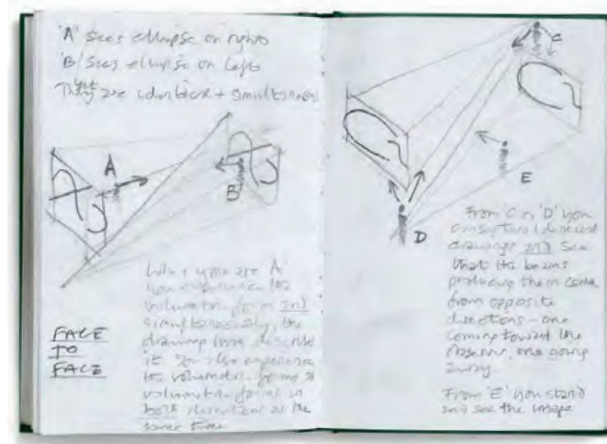 'A' sees ellipse on right
'B' sees ellipse on left
They are identical + simultaneous
A
B
When you are 'A'
you experience the
volumetric form and
simultaneously, the
drawing that describes
it. You also experience
the volumetric form as
volumetric forms in
both directions at the
same time
FACE
TO
FACE
C
E
D
From 'C' or 'D' you
can see two identical
drawings and see
that the beams
producing them come
from opposite
directions - one
coming toward the
observer, one going
away.
From 'E' you stand
and see the image